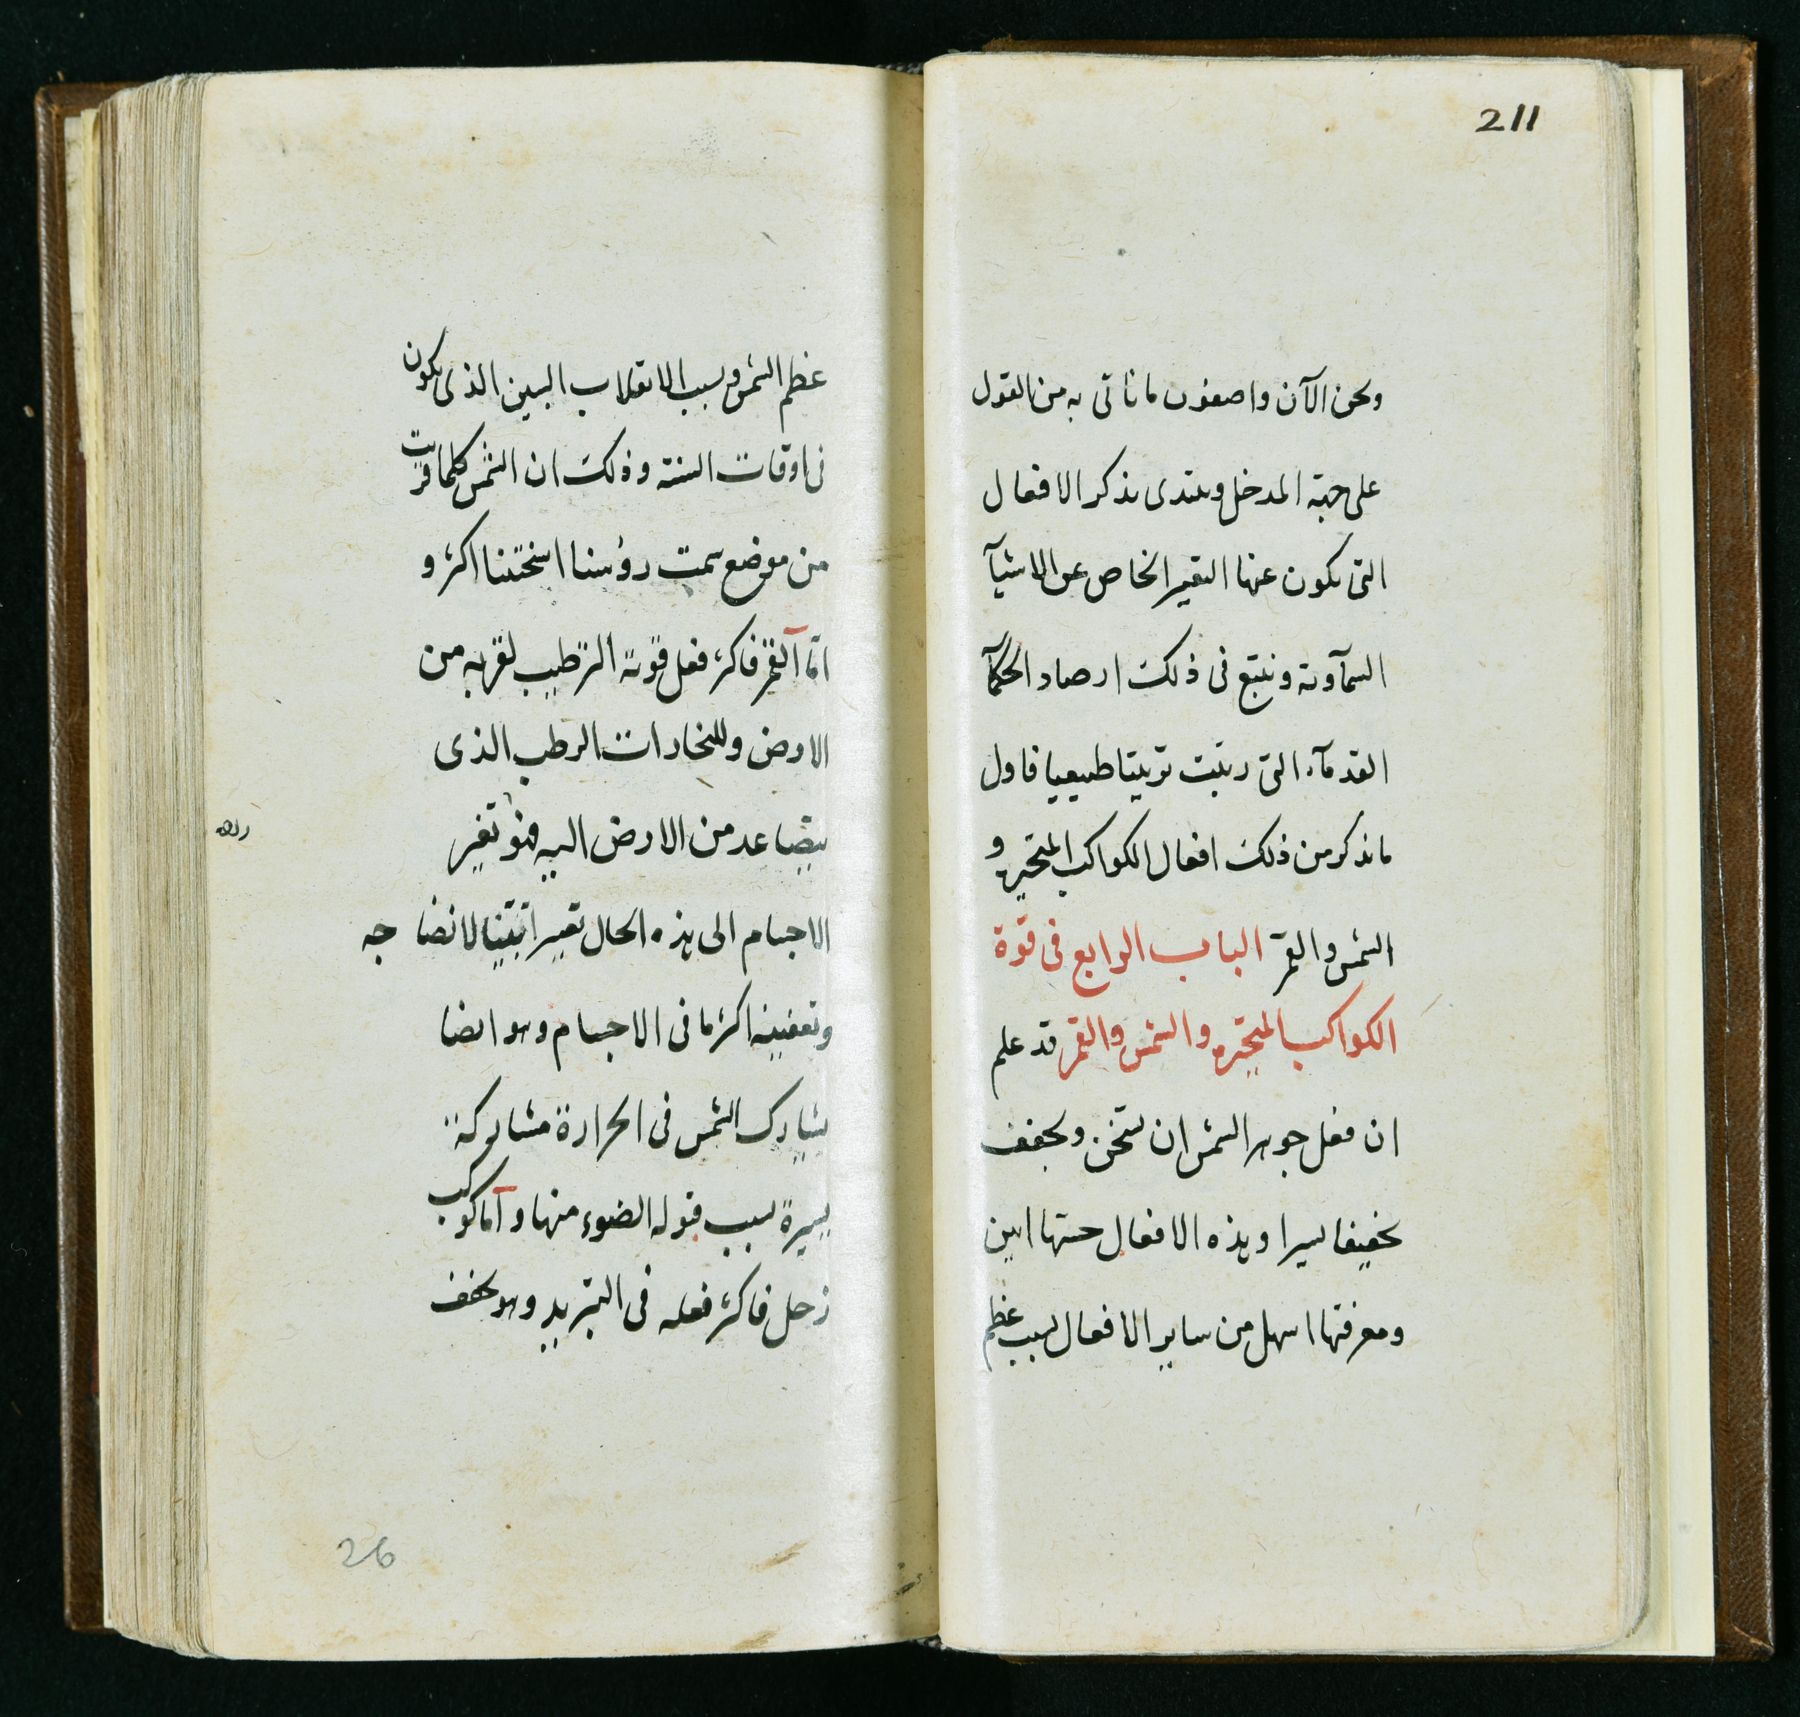 211
ونحن الآن واصفون ما ناتى به من القول
على جهة المدخل ونبتدى بذكر الافعال
التى تكون عنها التغير الخاص عن الاشيآ
السمآوية ونتبع فى ذلك ارصاد الحكمآ
القدمآء التى رتبت ترتيبا طبيعيا فاول
ما نذكر من ذلك افعال الكواكب المتحيره و
الشمس والقمر الباب الرابع فى قوة
الكواكب المتحيره والشمس والقمر قد علم
ان فعل جوهر الشمس ان تسخن وتجفف
تجفيفا يسيرا وهذه الافعال حستها ابين
ومعرفتها اسهل من ساير الافعال بسبب عظم
عظم الشمس وبسبب الانقلاب البين الذى يكون
فى اوقات السنة وذلك ان الشمس كلما قربت
من موضع سمت رؤسنا اسخنتنا اكثر و
امّا القمر فاكثر فعل قوته الترطيب لقربه من
الارض وللبخارات الرطب الذى
يتصاعد من الارض اليه فهو تغير
الاجسام الى هذه الحال تغييرا بيّنا لانضا جه
وتعفينه اكثر ما فى الاجسام وهو ايضا
يشارك الشمس فى الحرارة مشاركة
يسيرة بسبب قبوله الضوء منها وآما كوكب
زحل فاكثر فعله فى التبريد وهو يجفف
26